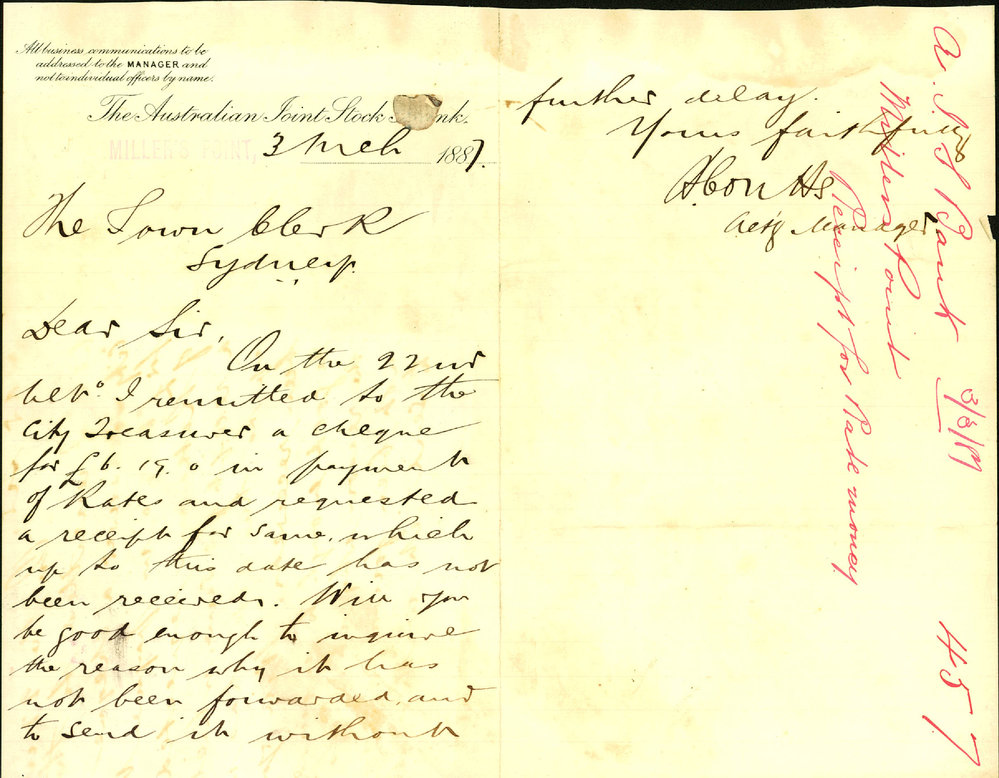 All business communications to be
addressed to the MANAGER and
not to individual officers by name.
The Australian Joint Stock nk.
MILLER'S POINT, 3 Mch 1887.
The Town Clerk
Sydney.
Dear Sir,
On the 22nd
ulto. I remitted to the
City Treasurer a cheque
for £6.19.0 in payment
of Rates and requested
a receipt for same, which
up to this date has not
been received. Will you
be good enough to inquire
the reason why it has
not been forwarded, and
to send it without
further delay.
Yours faithfully
Actg Manager
A. J. S Bank
Millers Point
3/3/87
Receipt for Rate money
457